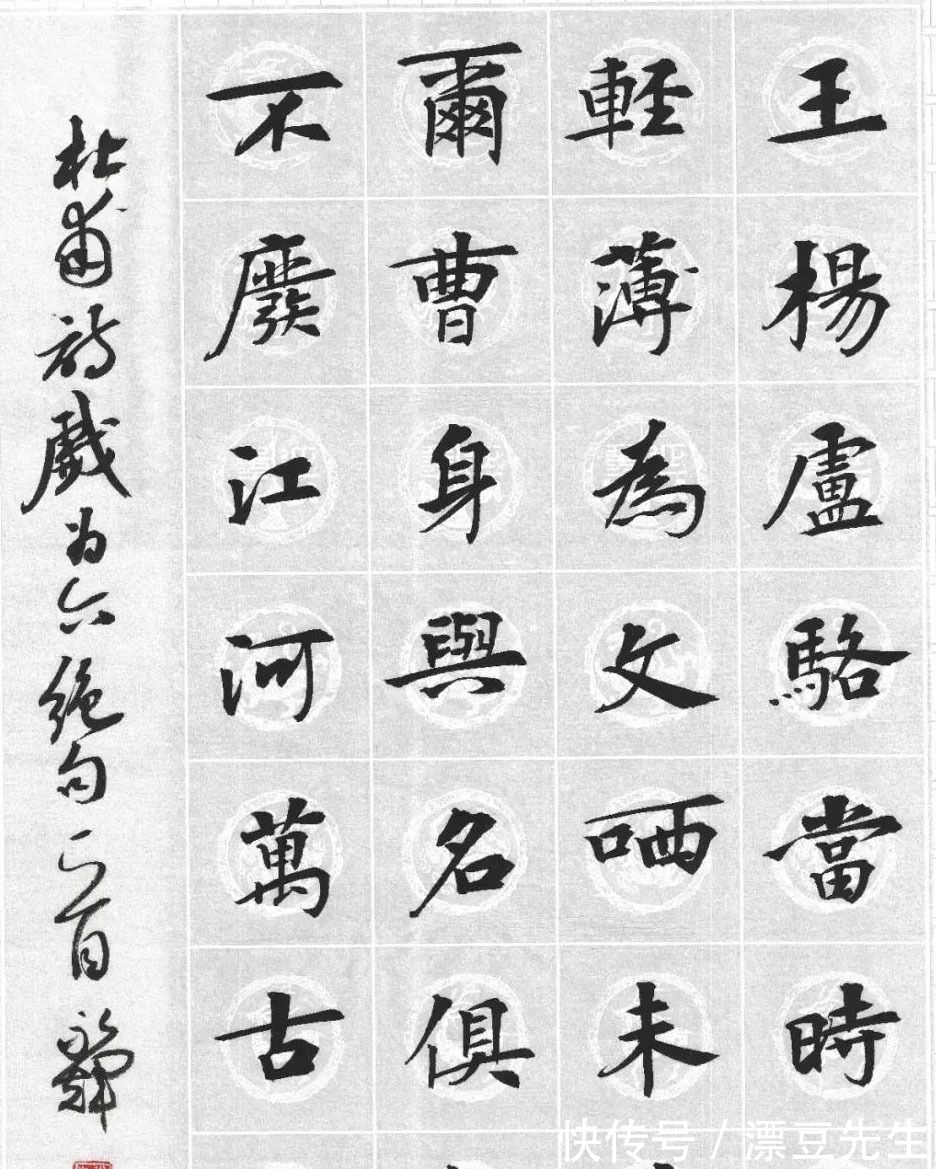 王楊盧駱當時
輕薄為文哂未
爾曹身與名俱
不廢江河萬古
杜甫詩戲为六絕句首
快传号 / 漂豆先生